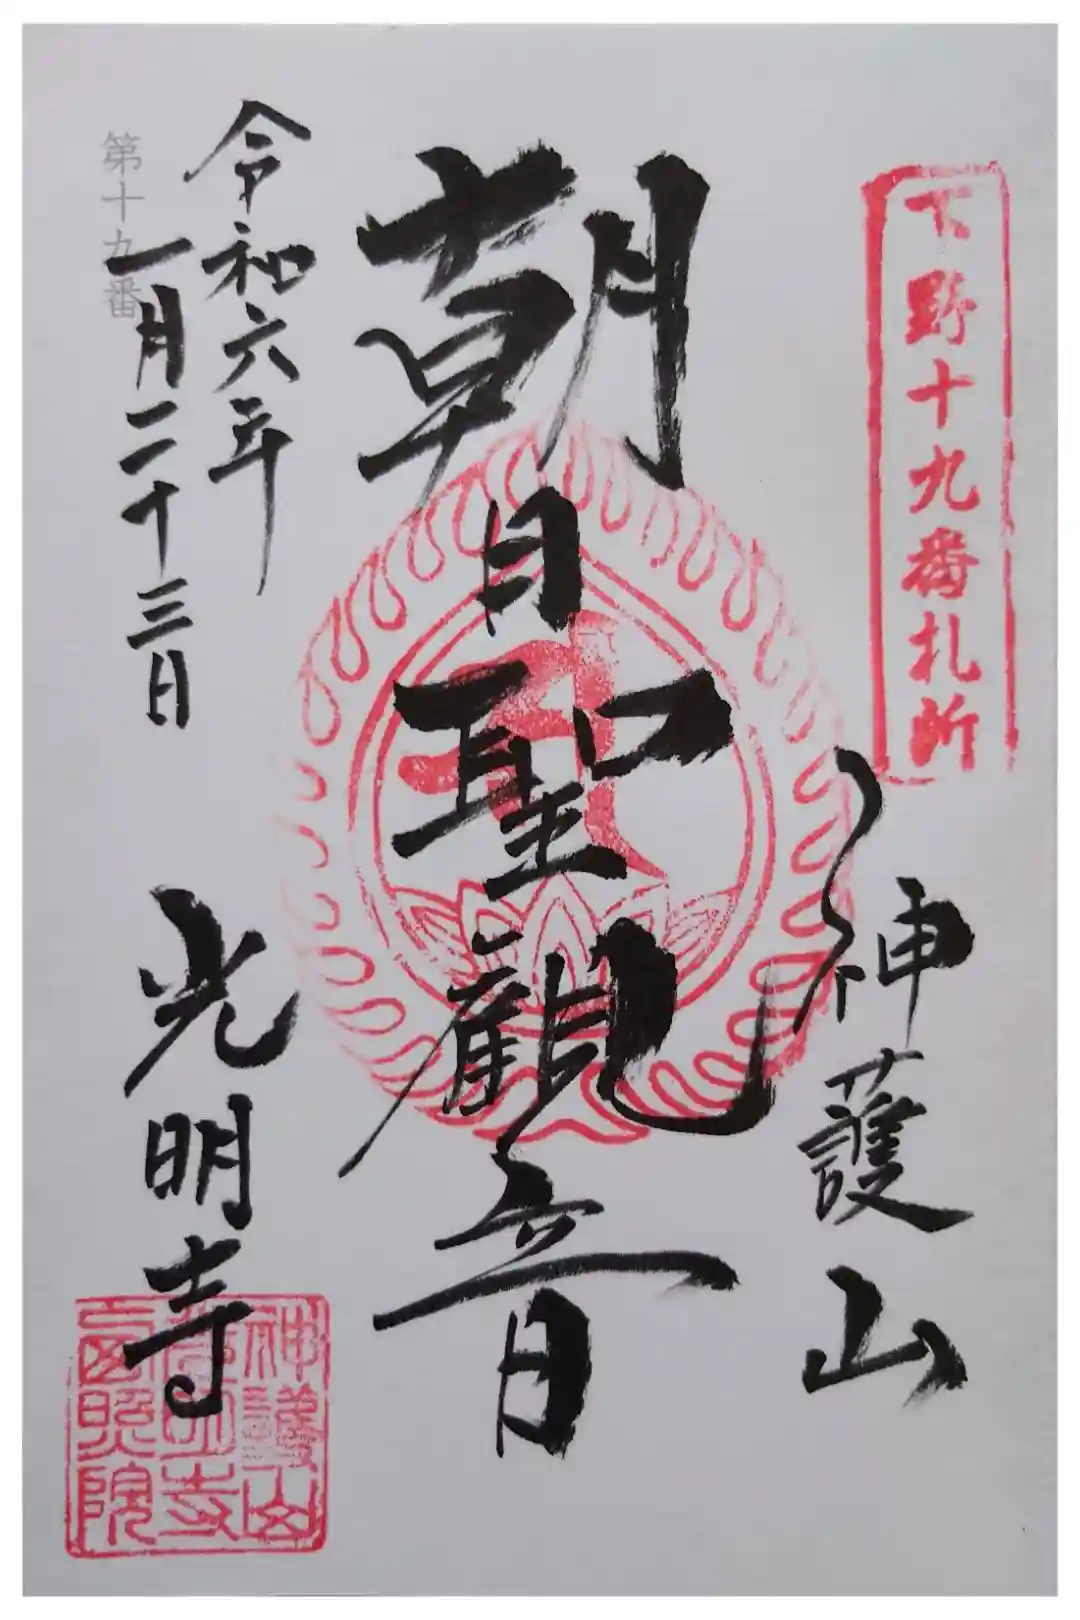 下野十九番札所
神護山
朝日聖観音
令和六年
一月二十三日
第十九番
光明寺
神護山
光明寺
遍照院